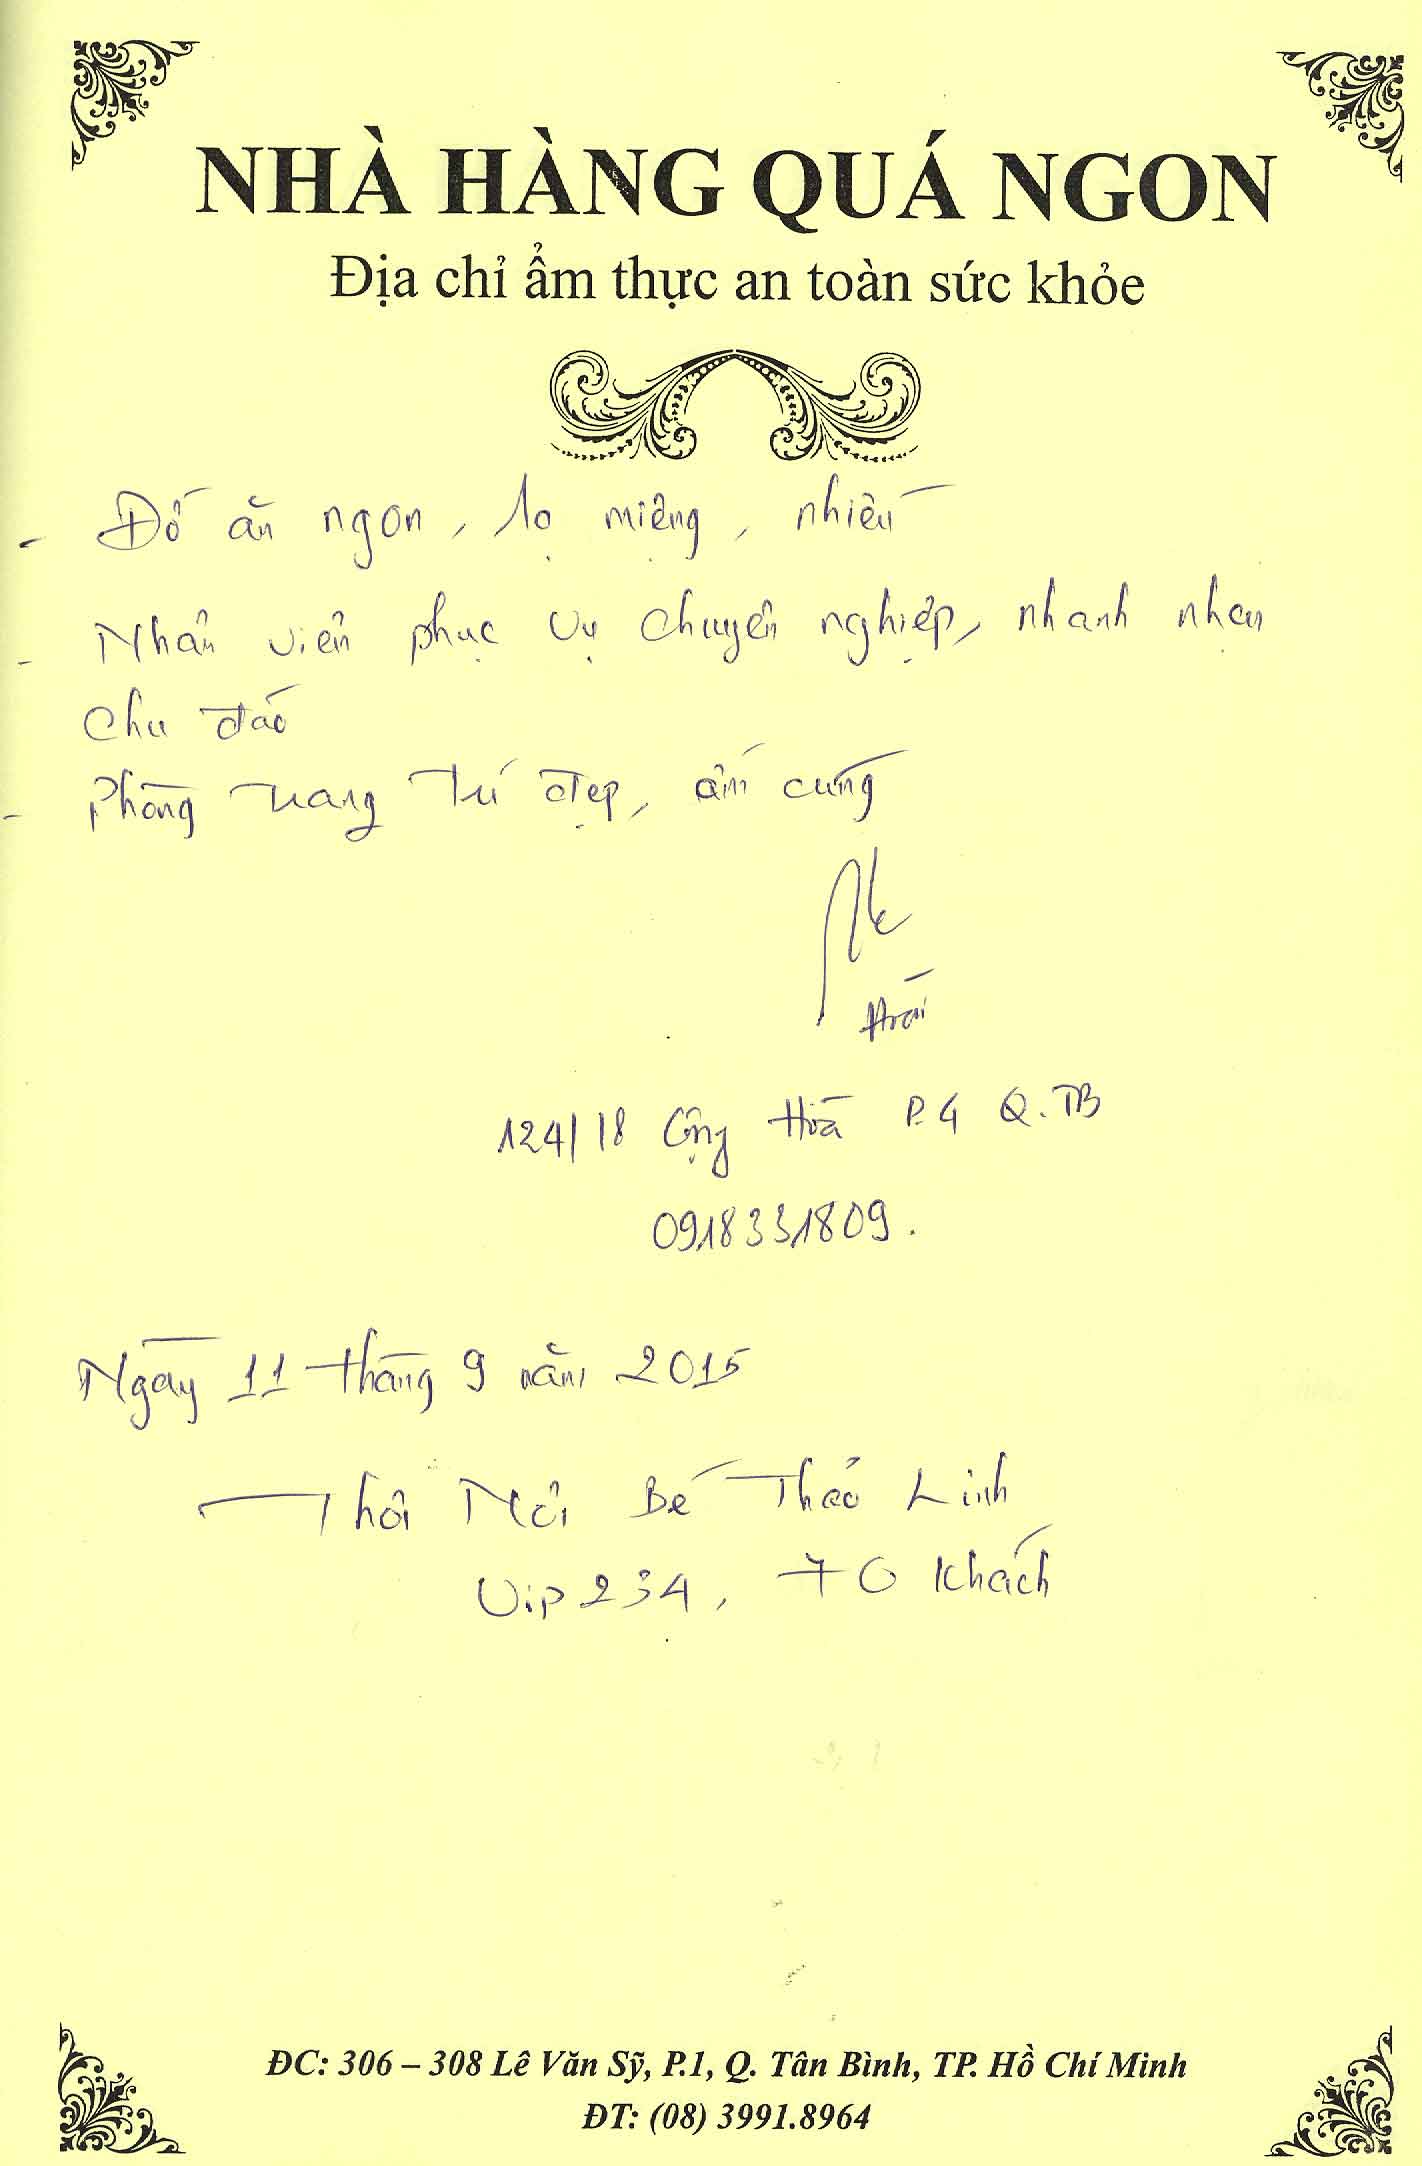 NHÀ HÀNG QUÁ NGON
Địa chỉ ẩm thực an toàn sức khỏe
- Đồ ăn ngon, lạ miệng, nhiều
- Nhân viên phục vụ chuyên nghiệp, nhanh nhẹn
chu đáo
- Phòng trang trí đẹp, ấm cúng
124/18 Cộng Hòa P.4 Q.TB
0918331809.
Ngày 11 tháng 9 năm 2015
Thôi Nôi Bé Thảo Linh
Vip 234, 70 khách
ĐC: 306 – 308 Lê Văn Sỹ, P.1, Q. Tân Bình, TP. Hồ Chí Minh
ĐT: (08) 3991.8964